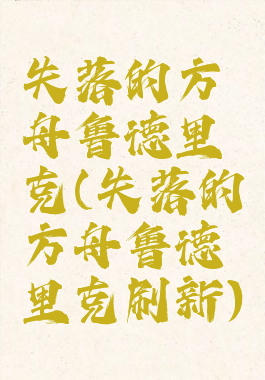 失落的方
舟鲁德里
克(失落的
方舟鲁德
里克刷新)